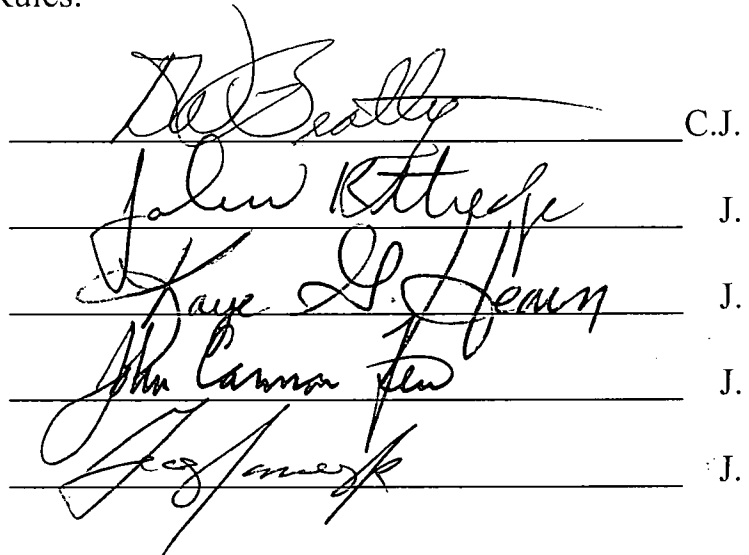 Rules.
Beatty C.J.
John Kittredge J.
Kaye G. Hearn J.
John Cannon Few J.
J.